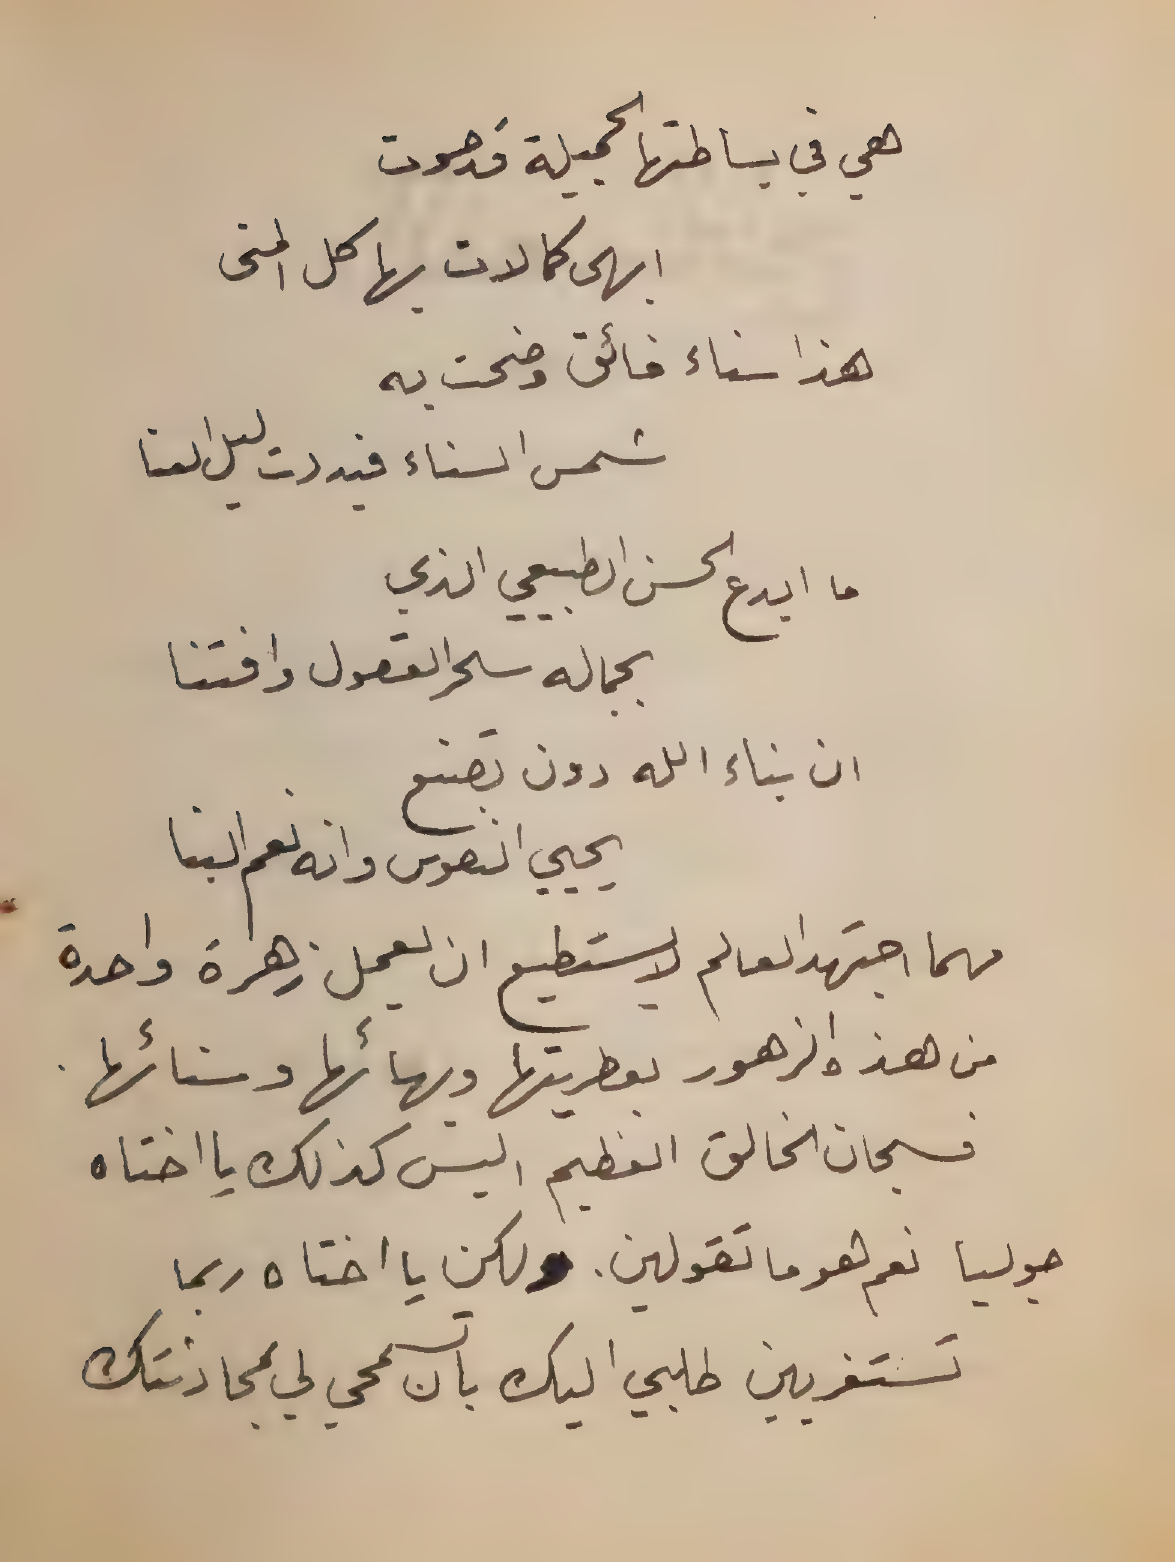 هي في بساطتها الجميلة قد حوت
ابهى كمالات بها كل المنى
هذا سناء فائق وضحت به
شمس السناء فبددت ليل العنا
ما ابدع الحسن الطبيعي الذي
بجماله سحر العقول وافتتنا
ان بناء الله دون تصنع
يحيي النفوس وانه نعم البنا
مهما اجتهد العالم لا يستطيع ان يعمل زهرة واحدة
من هذه الزهور بعطريتها وبهائها وسنائها .
فسبحان الخالق العظيم اليس كذلك يا اختاه
جوليا نعم هو ما تقولين . ولكن يا اختاه ربما
تستغربين طلبي اليك بان تسمحي لي بمحادثتك